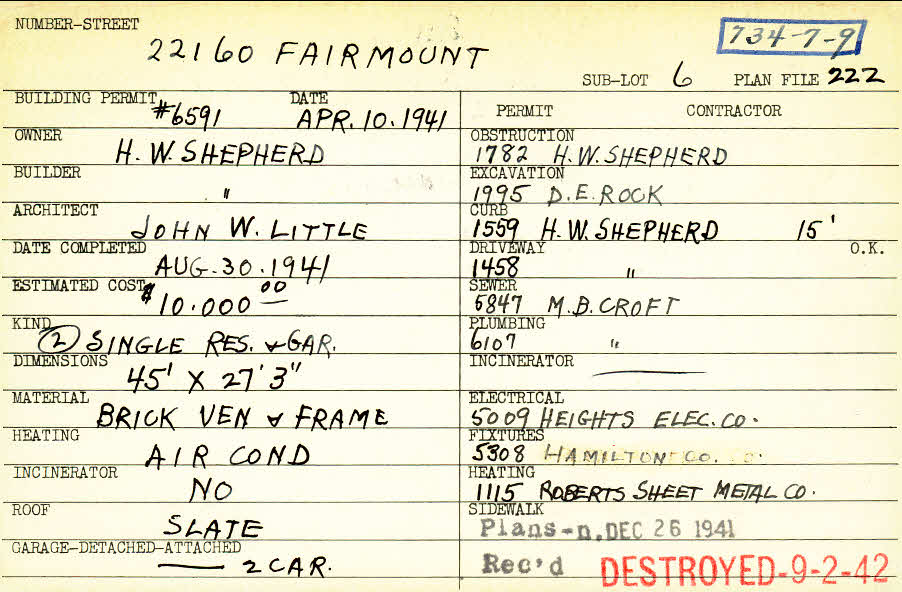 NUMBER-STREET
22160 FAIRMOUNT
734-7-9
SUB-LOT 6 PLAN FILE 222
BUILDING PERMIT #6591 DATE APR. 10. 1941
OWNER H. W. SHEPHERD
BUILDER "
ARCHITECT JOHN W. LITTLE
DATE COMPLETED AUG. 30. 1941
ESTIMATED COST $10.000 00
KIND (2) SINGLE RES. & GAR.
DIMENSIONS 45' X 27' 3"
MATERIAL BRICK VEN & FRAME
HEATING AIR COND
INCINERATOR NO
ROOF SLATE
GARAGE-DETACHED-ATTACHED 2 CAR.
PERMIT CONTRACTOR
OBSTRUCTION 1782 H. W. SHEPHERD
EXCAVATION 1995 D. E. ROCK
CURB 1559 H. W. SHEPHERD 15'
DRIVEWAY 1458 " O.K.
SEWER 5847 M. B. CROFT
PLUMBING 6107 "
INCINERATOR
ELECTRICAL 5009 HEIGHTS ELEC. CO.
FIXTURES 5308 HAMILTON CO.
HEATING 1115 ROBERTS SHEET METAL CO.
SIDEWALK
Plans-n. DEC 26 1941
Rec'd DESTROYED-9-2-42